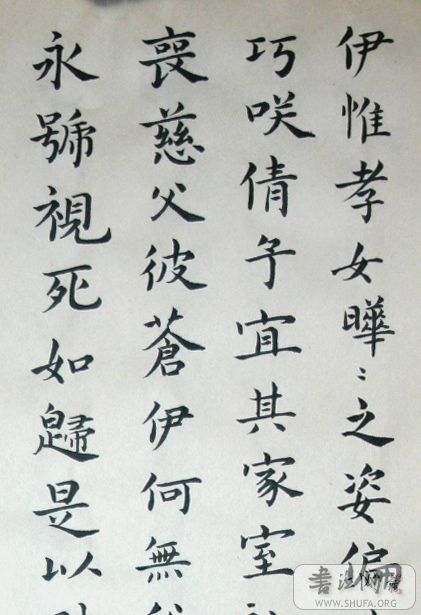 伊惟孝女曄〻之姿偏
巧咲倩兮宜其家室
喪慈父彼蒼伊何無
永號視死如歸是以
WWW.SHUFA.ORG